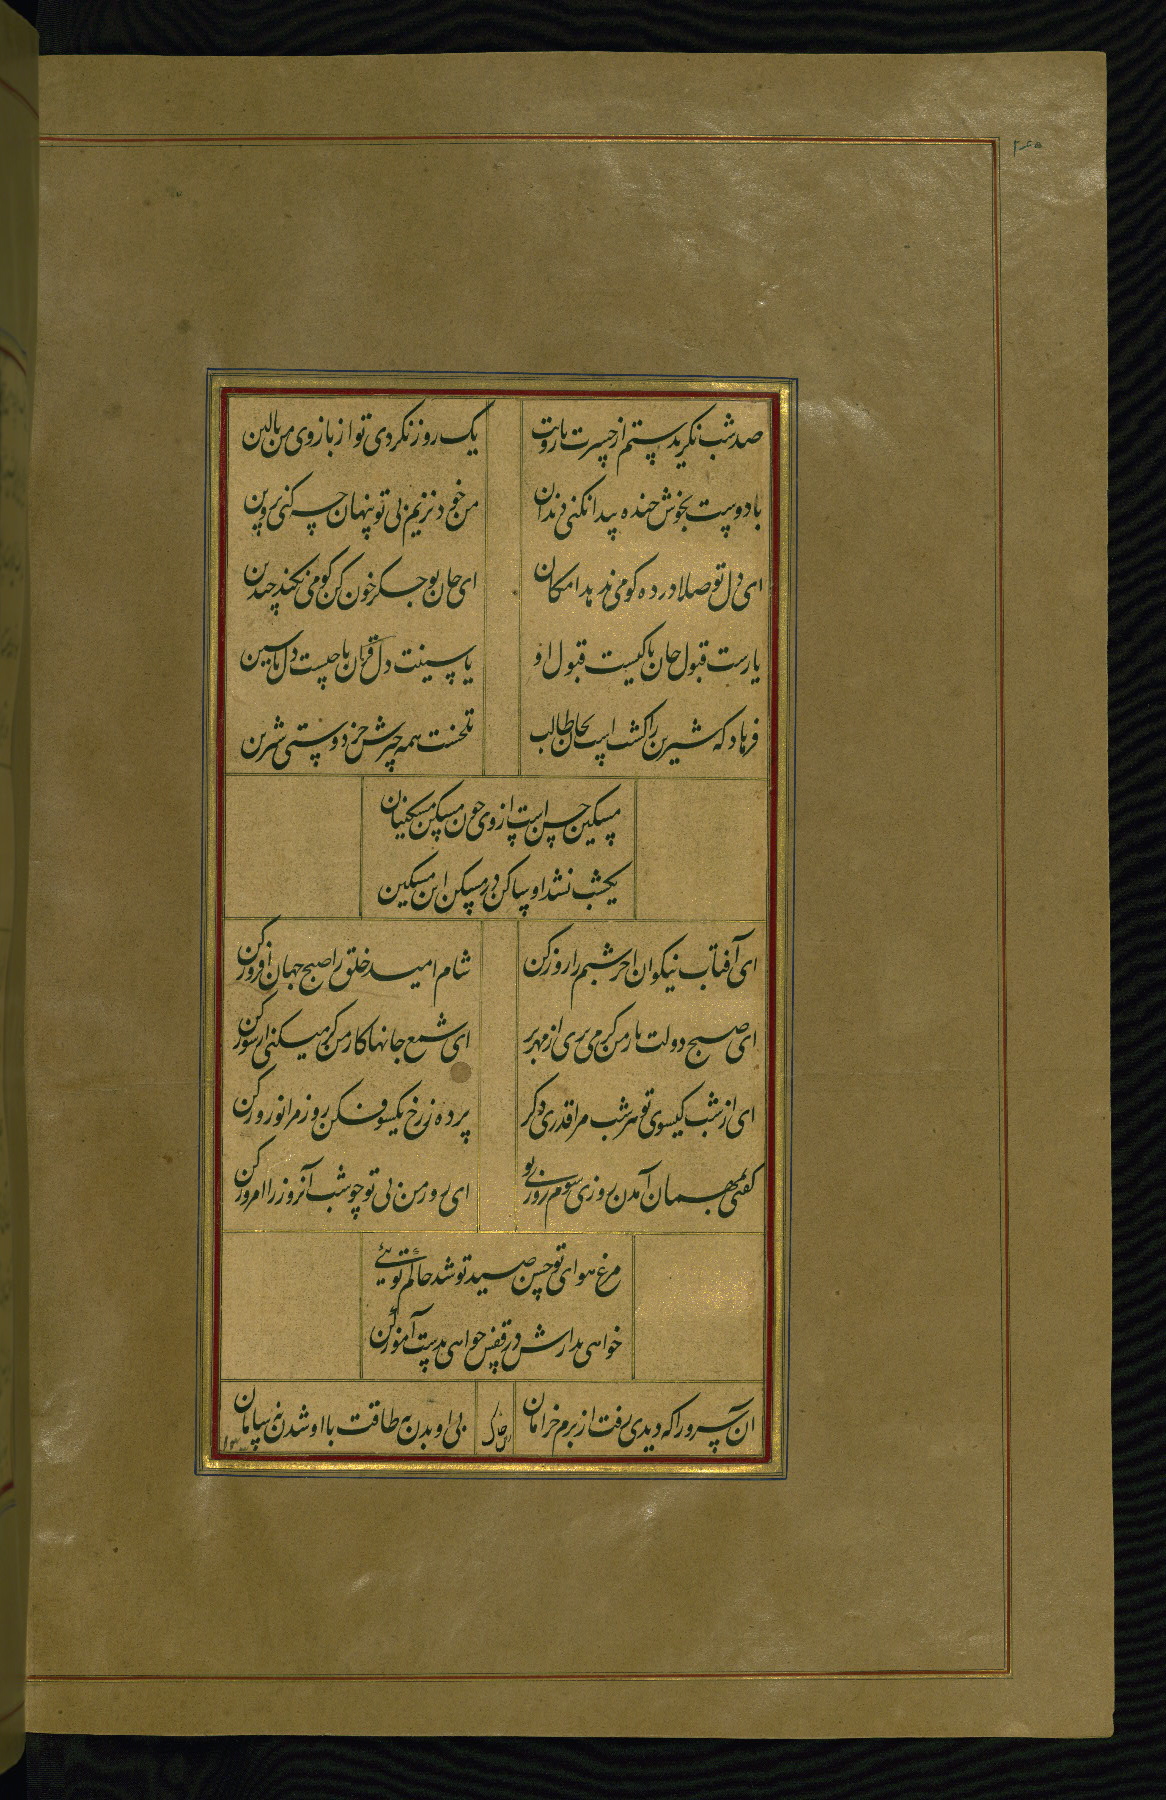 ۲۶۵
صد شب نگرید ستم از حسرت رویات
یک روز نکردی تو از بازوی من بالین
با دوست بخوش خنده پیدا نکنی دندان
من خود نزیم بی تو پنهان چه کنی پروین
ای دل تو صلا در ده کو می ندهد امکان
ای جان تو جگر خون کن کو می نکند چندین
یارست قبول جان تا کیست قبول او
یا سینت دل قربان تا چیست دل یاسین
فرهاد که شیرین را کشت است بجان طالب
تلخست همه چیزش جز دوستی شیرین
مسکین حسن است از وی چون مسکن مسکینان
یکشب نشد او ساکن در مسکن این مسکین
ای آفتاب نیکوان اخر شبم را روز کن
شام امید خلق را صبح جهان افروز کن
ای صبح دولت بار من گر می بری از مهر بر
ای شمع جانها کار من گر میکنی از سوز کن
ای از شب گیسوی تو هر شب مرا قدری دگر
پرده ز رخ یکسو فکن روز مرا نوروز کن
گفتی بمهمان آمدن روزی سوم روزی تو
ای روز من بی تو چو شب آنروز را امروز کن
مرغ هوای تو حسن صید تو شد حاکم تویی
خواهی بدارش در قفس خواهی بدست آموز کن
ان سرو را که دیدی رفت از برم خرامان
بی او بدن نه طاقت با او شدن نه سامان